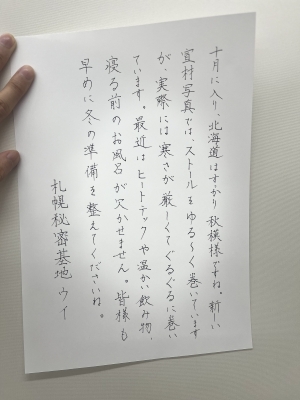 十月に入り、北海道はすっかり秋模様ですね。新しい
宣材写真では、ストールをゆる〜く巻いています
が、実際には寒さが厳しくてぐるぐるに巻い
ています。最近はヒートテックや温かい飲み物、
寝る前のお風呂が欠かせません。皆様も
早めに冬の準備を整えてくださいね。
札幌秘密基地 ウィ